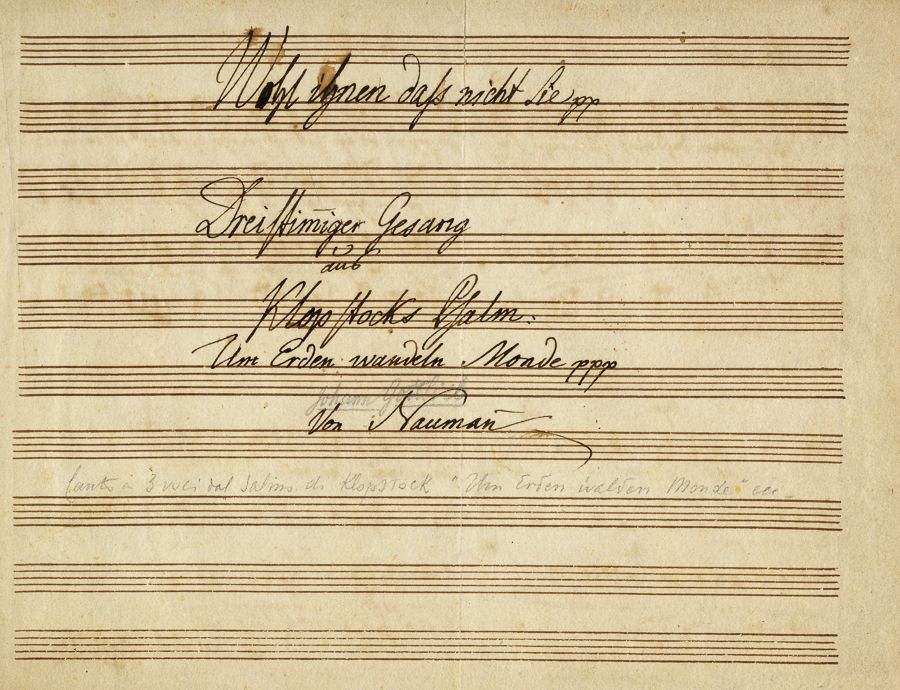 Wohl ihnen daß nicht Sie pp
Dreistim̄iger Gesang
aus
Klopstocks Psalm:
Um Erden wandeln Monde ppp
Johann Gottlieb
Von Nauman̄
Canto a 3 voci dal Salmo di Klopstock "Um Erden walden Monde" ecc_